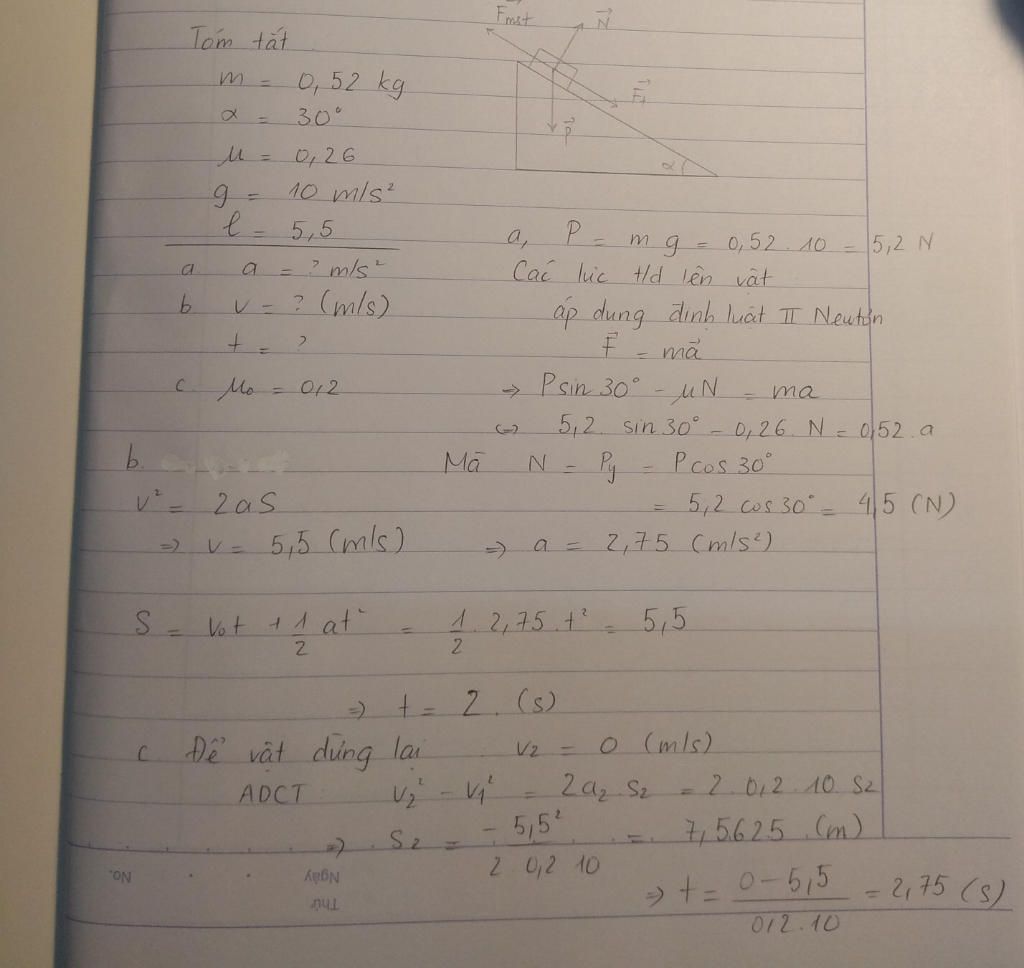 Tóm tắt
m = 0,52 kg
α = 30°
μ = 0,26
g = 10 m/s²
l = 5,5
a. a = ? m/s²
b v = ? (m/s)
t = ?
c. μ₀ = 0,2
Fmst
N
F₁
P
α
a, P = mg = 0,52 . 10 = 5,2 N
Các lực t/d lên vật
áp dụng định luật II Newtơn
F = ma
⇒ Psin 30° - μN = ma
⇔ 5,2. sin 30° - 0,26. N = 0,52. a
Mà N = Py = Pcos 30°
= 5,2 cos 30° = 4,5 (N)
⇒ a = 2,75 (m/s²)
b.
v² = 2aS
⇒ v = 5,5 (m/s)
S = v₀t + 1/2 at² = 1/2 . 2,75 . t² = 5,5
⇒ t = 2. (s)
c. Để vật dừng lại v₂ = 0 (m/s)
ADCT v₂² - v₁² = 2a₂.s₂ = 2. 0,2. 10. s₂
⇒ s₂ = - 5,5² / 2 0,2 10 = 7,5625 (m)
⇒ t = 0 - 5,5 / 0,2.10 = 2,75 (s)
Thứ
Ngày
No.